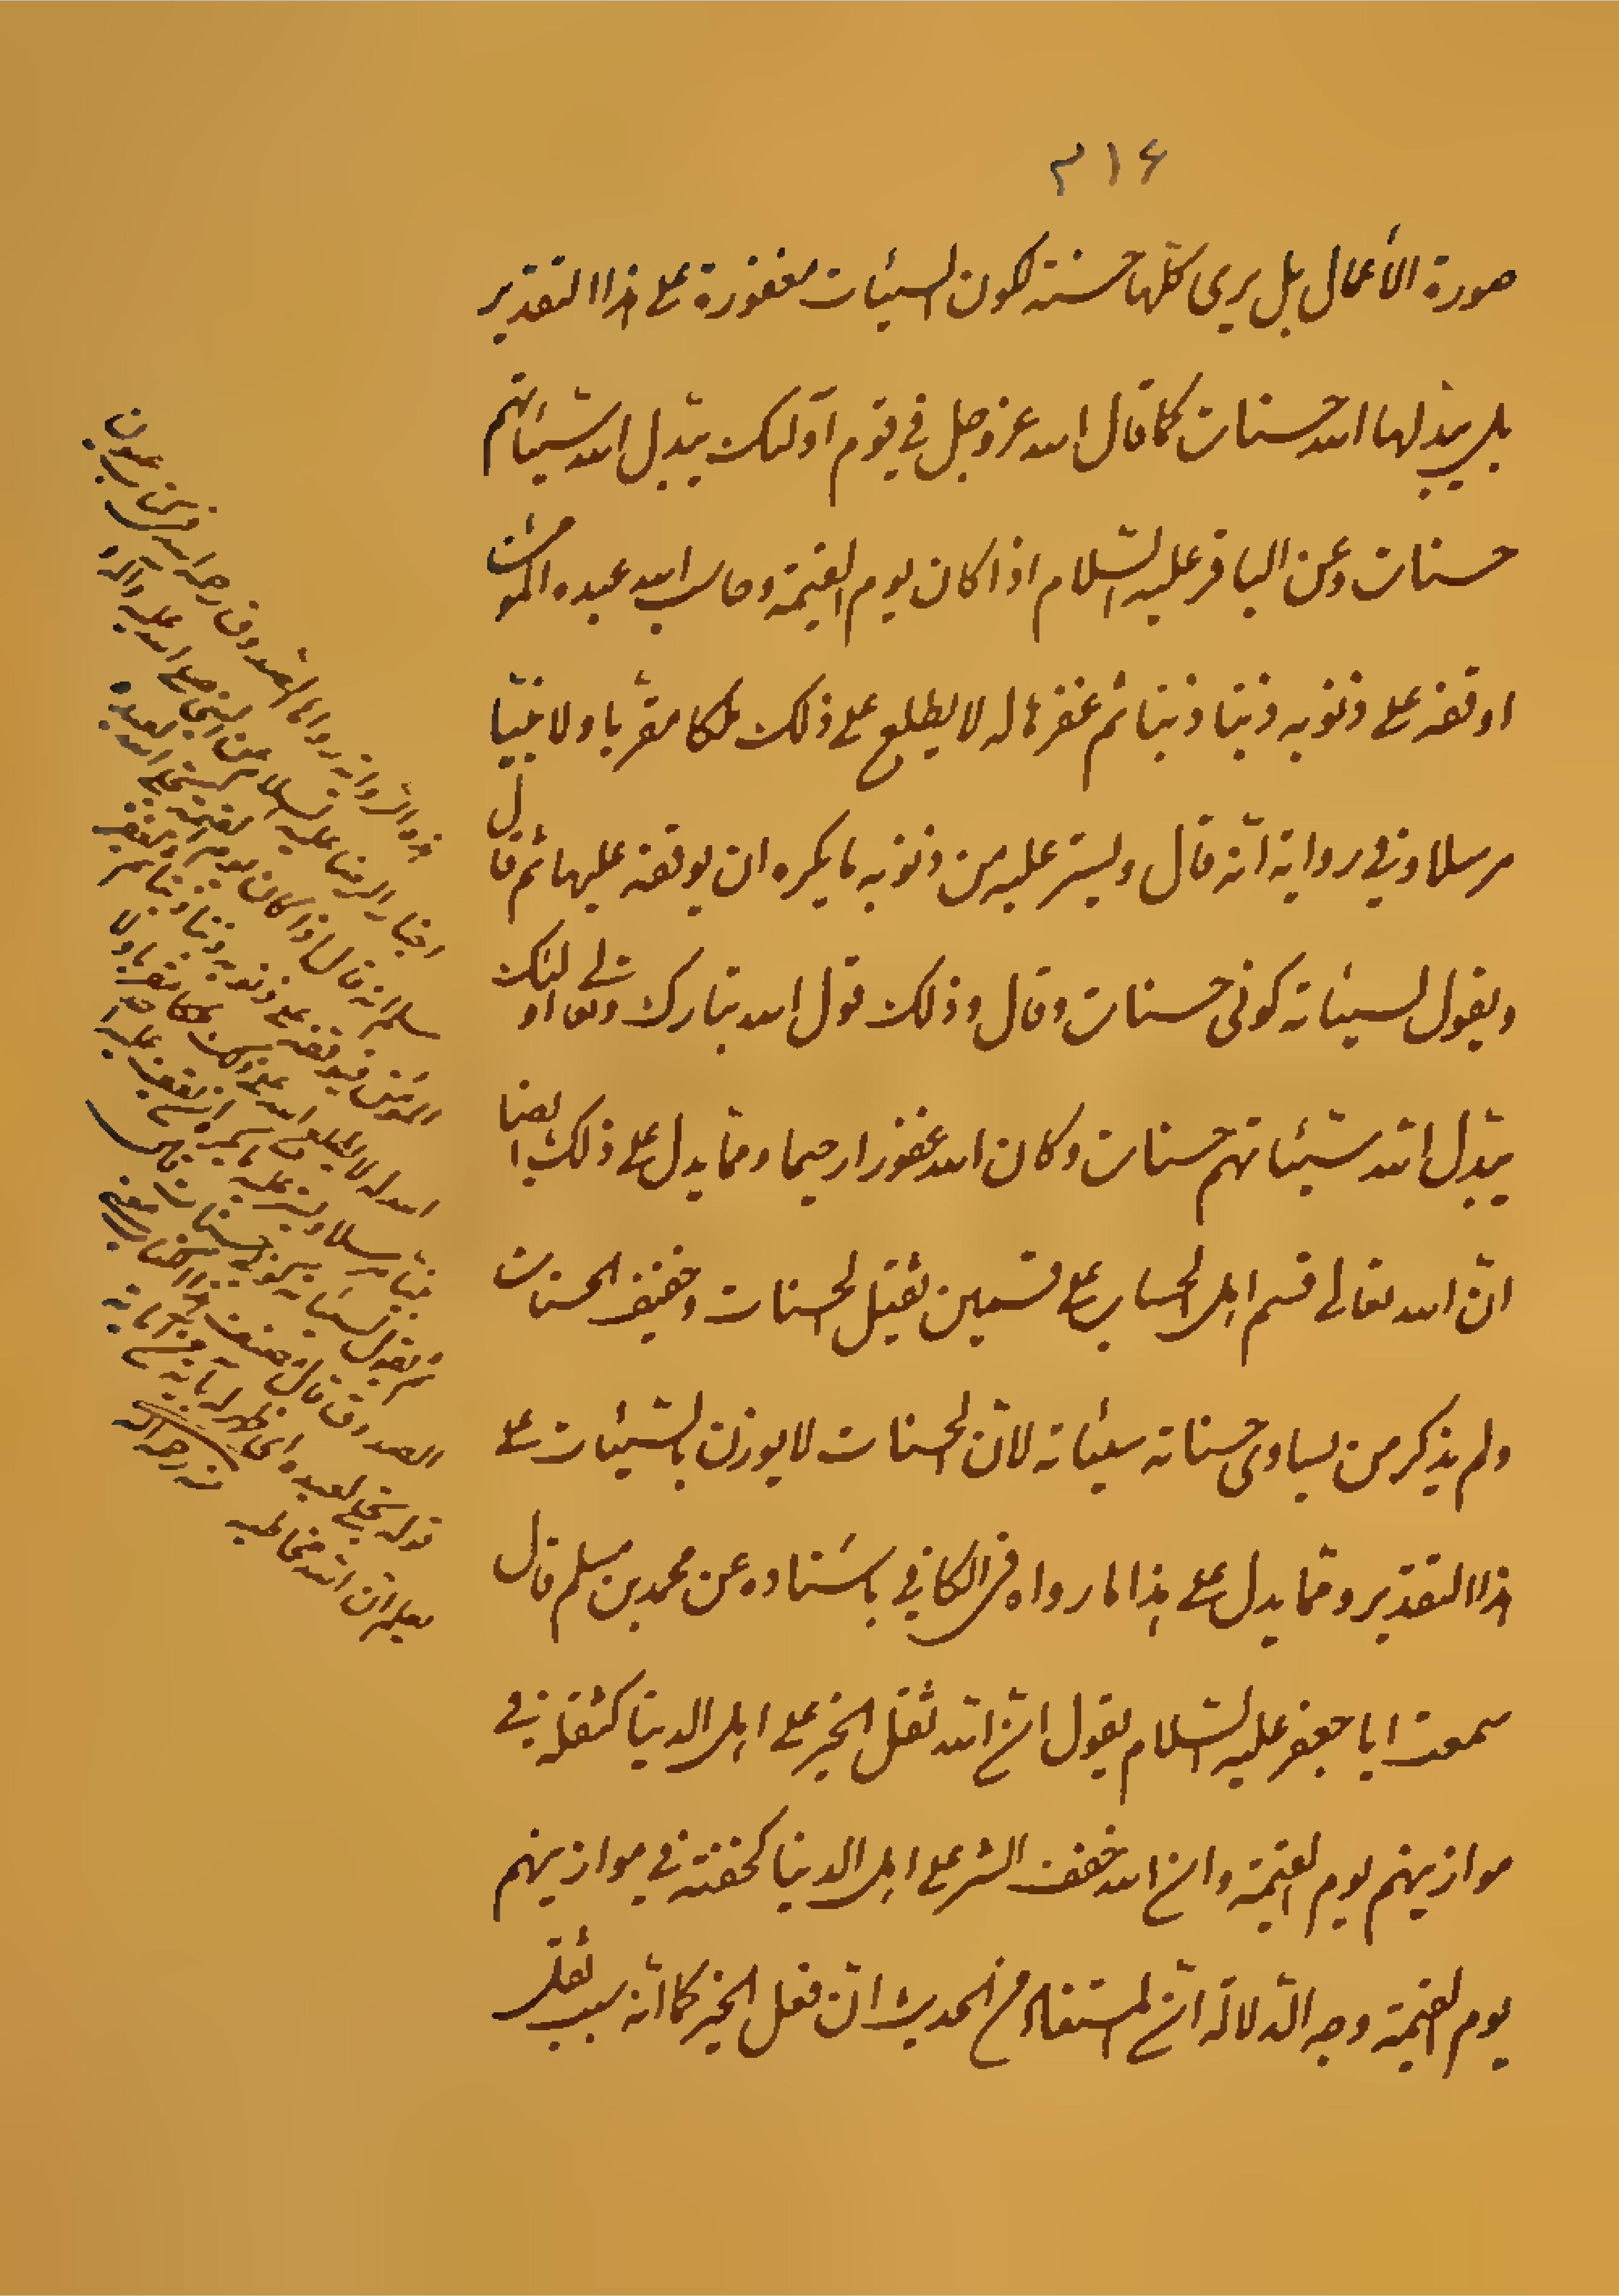 ۲۱۶
صورة الأعمال بل يرى كلّها حسنة لكون السيئات مغفورة على هذا التقدير
بل يبدلها الله حسنات كما قال الله عز وجل في قوم اولئك يبّدل الله سيّئاتهم
حسنات وعن الباقر عليه السّلام اذا كان يوم القيمة وحاسب الله عبده المؤمن
اوقفه على ذنوبه ذنبا ذنبا ثم غفرها له لا يطلع على ذلك ملكا مقرّبا ولا نبيّا
مرسلا وفي رواية انّه قال ويستر عليه من ذنوبه ما يكره ان يوقفه عليها ثم قال
ويقول لسيئاته كوني حسنات وقال وذلك قول الله تبارك وتعالى اولئك
يبّدل الله سيّئاتهم حسنات وكان الله غفورا رحيما وممّا يدل على ذلك ايضا
انّ الله تعالى قسم اهل الحساب على قسمين ثقيل الحسنات وخفيف الحسنات
ولم يذكر من يساوى حسناته سيئاته لانّ الحسنات لا يوزن بالسّيئات على
هذا التقدير وممّا يدل على هذا ما رواه في الكافي باسناده عن محمد بن مسلم قال
سمعت ابا جعفر عليه السّلام يقول انّ الله ثقل الخير على اهل الدينا كثقله في
موازينهم يوم القيمة وان الله خفف الشر على اهل الدنيا كخفته في موازينهم
يوم القيمة وجه الدّلالة انّ المستفاد من الحديث انّ فعل الخير كما انّه سبب ثقل
هذه الرّواية رواها الصّدوق رحمه الله في عيون
اخبار الرضا عليه السلام عن النبي صلى الله عليه وآله
وسلم انه قال اذا كان يوم القيمة تجلى الله لعبده
المؤمن فيوقفه على ذنوبه ذنبا ذنبا ثم يغفر
الله له لا يطلع الله على ذلك ملكا مقربا ولا
نبيّا مرسلا ويستر عليه ما يكره ان يقف عليه احد
ثم يقول لسيّئاته كوني حسنات
الصدوق قال مصنف هذا الكتاب معنى
قوله تجلى لعبده اى ظهر له بآية من آياته
يعلم انّ الله مخاطبه منه رحمه الله